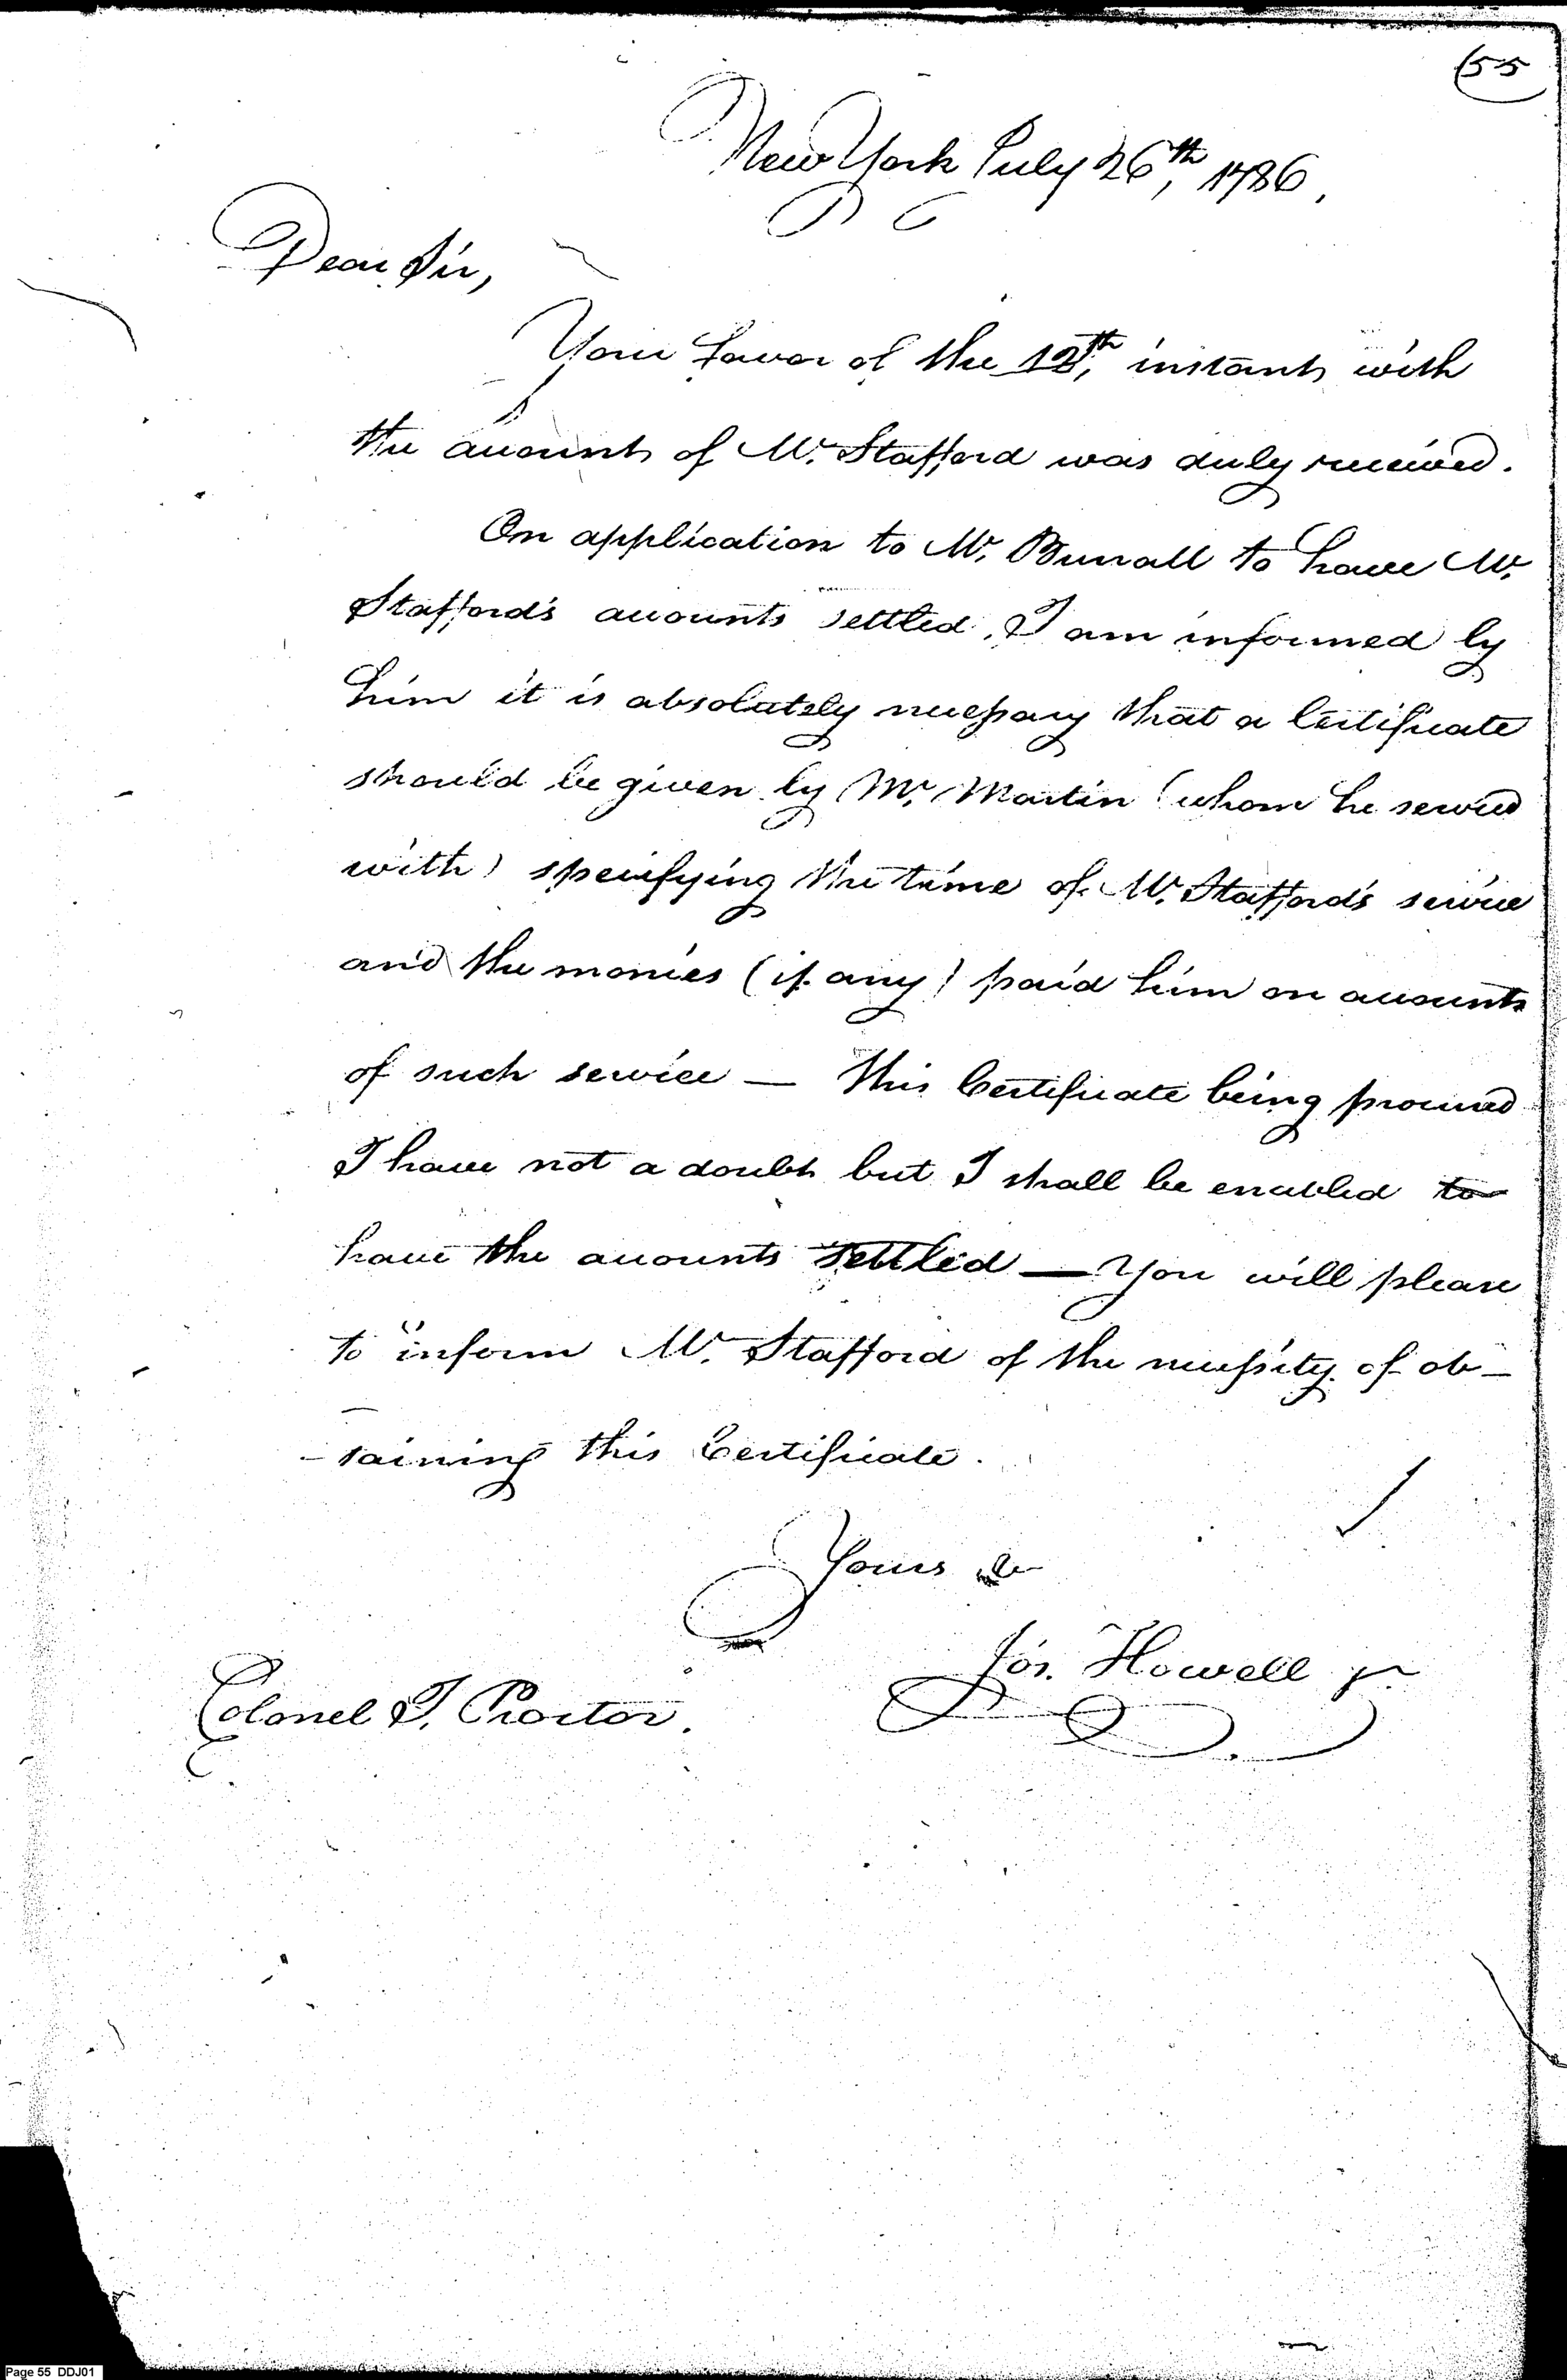 55
New York July 26th, 1786,
Dear Sir,
Your favor of the 12th, instant, with
the account of Mr. Stafford was duly received.
On application to Mr. Burrall to have Mr.
Stafford's accounts settled, I am informed by
him it is absolutely necessary that a Certificate
should be given by Mr. Martin (whom he served
with) specifying the time of Mr. Stafford's service
and the monies (if any) paid him on accounts
of such service — This Certificate being procured
I have not a doubt but I shall be enabled to
have the accounts settled — You will please
to inform Mr. Stafford of the necessity of ob-
-taining this Certificate.
Yours &c
Jos. Howell jr
Colonel T. Proctor.
Page 55 DDJ01